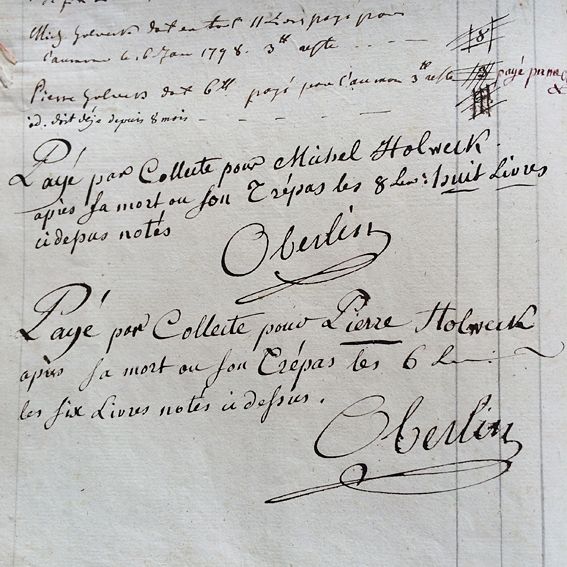 Mich Holweck doit en tout 11 # payé pour
l'aumone le 6 Jan 1798. 3# reste - - - 8
Pierre Holweck doit 6# payé pour l'aumon 3# reste
id. doit déja depuis 8 mois - - - -
Payé par Collecte pour Michel Holweck.
après sa mort ou son Trépas les 8 huit Livres
cidessus notés
Oberlin
Payé par Collecte pour Pierre Holweck
après sa mort ou son Trépas les 6
les six Livres notés cidessus.
Oberlin